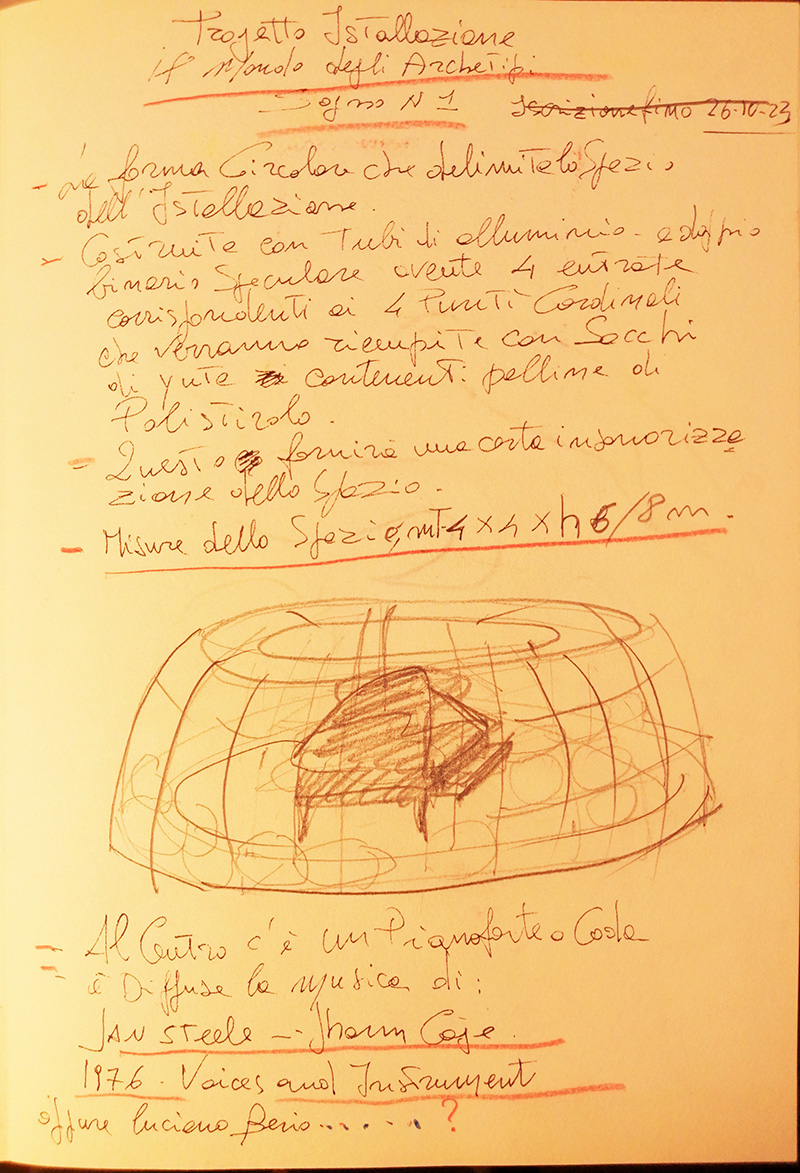 Progetto Istallazione
il Mondo degli Archetipi
Sogno N 1 Iscrizione fino 26-10-23
- La forma Circolare che delimita lo Spazio
dell'Istallazione.
- Costruita con Tubi di alluminio - a doppio
binario Speculare avente 4 entrate
corrispondenti ai 4 Punti Cardinali
che verranno riempite con Sacchi
di yuta contenenti palline di
Polistirolo.
- Questo fornirà una certa insonorizza
zione dello Spazio.
- Misure dello Spazio, mt 4 x 4 x h 6/8 m.
- Al Centro c'è un Pianoforte a Coda
- è Diffusa la musica di:
JAN STEELE - Jhonn Cage
1976 - Voices and Instrument
oppure Luciano Berio...... ?